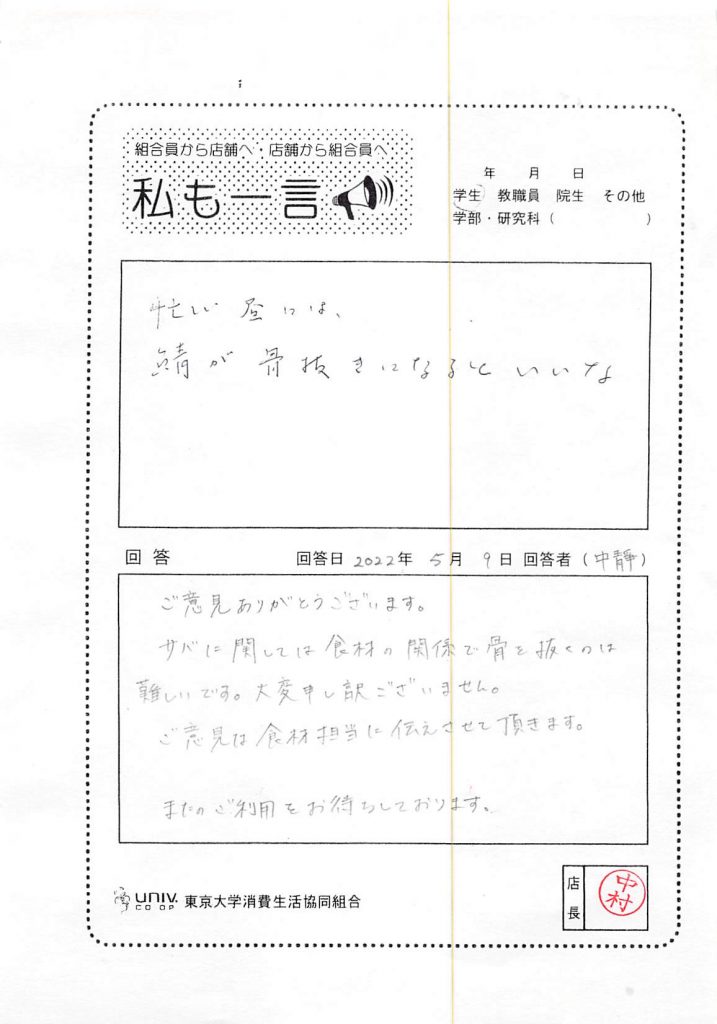 組合員から店舗へ・店舗から組合員へ
私も一言
年 月 日
学生 教職員 院生 その他
学部・研究科( )
忙しい昼には、
鯖が骨抜きになるといいな
回答 回答日 2022年 5月 9日 回答者(中靜)
ご意見ありがとうございます。
サバに関しては食材の関係で骨を抜くのは
難しいです。大変申し訳ございません。
ご意見は食材担当に伝えさせて頂きます。
またのご利用をお待ちしております。
UNIV. CO-OP 東京大学消費生活協同組合
店長 中村